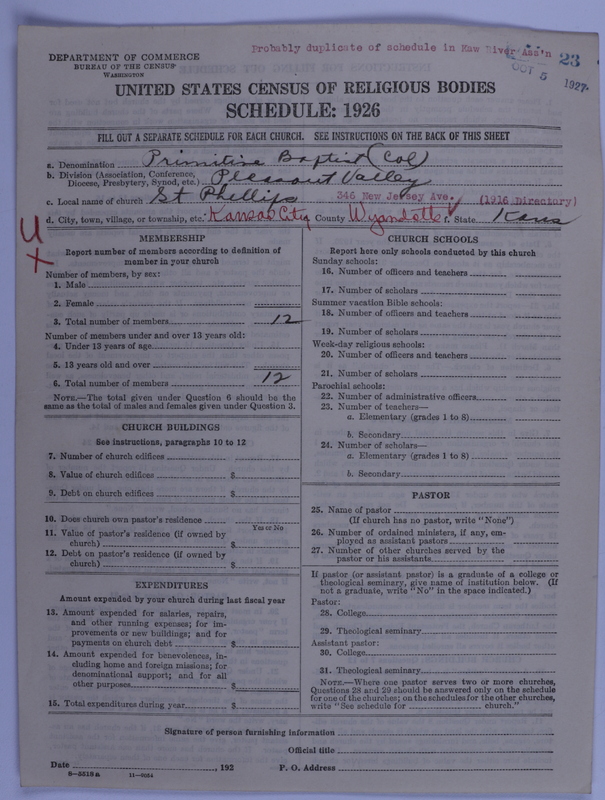 Probably duplicate of schedule in Kaw River Ass'n
23
OCT 5 1927
DEPARTMENT OF COMMERCE
BUREAU OF THE CENSUS
WASHINGTON
UNITED STATES CENSUS OF RELIGIOUS BODIES
SCHEDULE: 1926
FILL OUT A SEPARATE SCHEDULE FOR EACH CHURCH. SEE INSTRUCTIONS ON THE BACK OF THIS SHEET
a. Denomination Primitive Baptist (Col)
b. Division (Association, Conference,
Diocese, Presbytery, Synod, etc.) Pleasant Valley
c. Local name of church St Phillips 346 New Jersey Ave. (1916 Directory)
d. City, town, village, or township, etc. Kansas City County Wyandotte State Kans
MEMBERSHIP
Report number of members according to definition of
member in your church
Number of members, by sex:
1. Male
2. Female
3. Total number of members 12
Number of members under and over 13 years old:
4. Under 13 years of age
5. 13 years old and over
6. Total number of members 12
NOTE.—The total given under Question 6 should be the
same as the total of males and females given under Question 3.
CHURCH BUILDINGS
See instructions, paragraphs 10 to 12
7. Number of church edifices
8. Value of church edifices $
9. Debt on church edifices $
10. Does church own pastor's residence
Yes or No
11. Value of pastor's residence (if owned by
church) $
12. Debt on pastor's residence (if owned by
church) $
EXPENDITURES
Amount expended by your church during last fiscal year
13. Amount expended for salaries, repairs,
and other running expenses; for im-
provements or new buildings; and for
payments on church debt $
14. Amount expended for benevolences, in-
cluding home and foreign missions; for
denominational support; and for all
other purposes $
15. Total expenditures during year $
CHURCH SCHOOLS
Report here only schools conducted by this church
Sunday schools:
16. Number of officers and teachers
17. Number of scholars
Summer vacation Bible schools:
18. Number of officers and teachers
19. Number of scholars
Week-day religious schools:
20. Number of officers and teachers
21. Number of scholars
Parochial schools:
22. Number of administrative officers
23. Number of teachers—
a. Elementary (grades 1 to 8)
b. Secondary
24. Number of scholars—
a. Elementary (grades 1 to 8)
b. Secondary
PASTOR
25. Name of pastor
(If church has no pastor, write "None")
26. Number of ordained ministers, if any, em-
ployed as assistant pastors
27. Number of other churches served by the
pastor or his assistants
If pastor (or assistant pastor) is a graduate of a college or
theological seminary, give name of institution below. (If
not a graduate, write "No" in the space indicated.)
Pastor:
28. College
29. Theological seminary
Assistant pastor:
30. College
31. Theological seminary
NOTE.—Where one pastor serves two or more churches,
Questions 28 and 29 should be answered only on the schedule
for one of the churches; on the schedules for the other churches,
write "See schedule for church."
Signature of person furnishing information
Official title
Date , 192 P. O. Address
8-5518a 11-9034